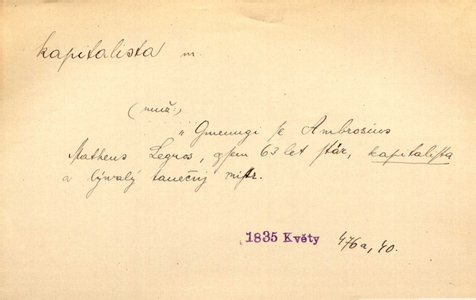 kapitalista m.
(muž:)
„ Gmenugi ſe Ambrosius
Matheus Legros, gſem 63 let ſtár, kapitaliſta
a býwalý tanečnj miſtr.
1835 Květy 476a, 40.